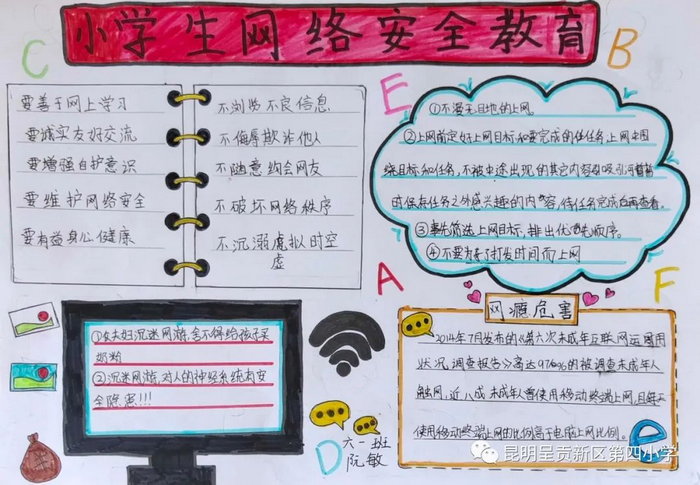 小学生网络安全教育
C
B
要善于网上学习
要诚实友好交流
要增强自护意识
要维护网络安全
要有益身心健康
不浏览不良信息
不侮辱欺诈他人
不随意约会网友
不破坏网络秩序
不沉溺虚拟时空
虚
E
①不漫无目地的上网。
②上网前定好上网目标和要完成的任务,上网中围
绕目标和任务,不被中途出现的其它内容吸引,可暂
时保存任务之外感兴趣的内容,待任务完成后再查看。
③事先筛选上网目标,排出优先顺序。
④不要为了打发时间而上网
A
F
①夫妇沉迷网游,舍不得给孩子买
奶粉
②沉迷网游,对人的神经系统有安
全隐患!!!
网瘾危害
2014年7月发布的《第六次未成年互联网运用
状况,调查报告》高达97%的被调查未成年人
触网,近八成未成年曾使用移动终端上网,且每天
使用移动终端上网的比例高于电脑上网比例。
D
六一班
阮敏
e
昆明呈贡新区第四小学